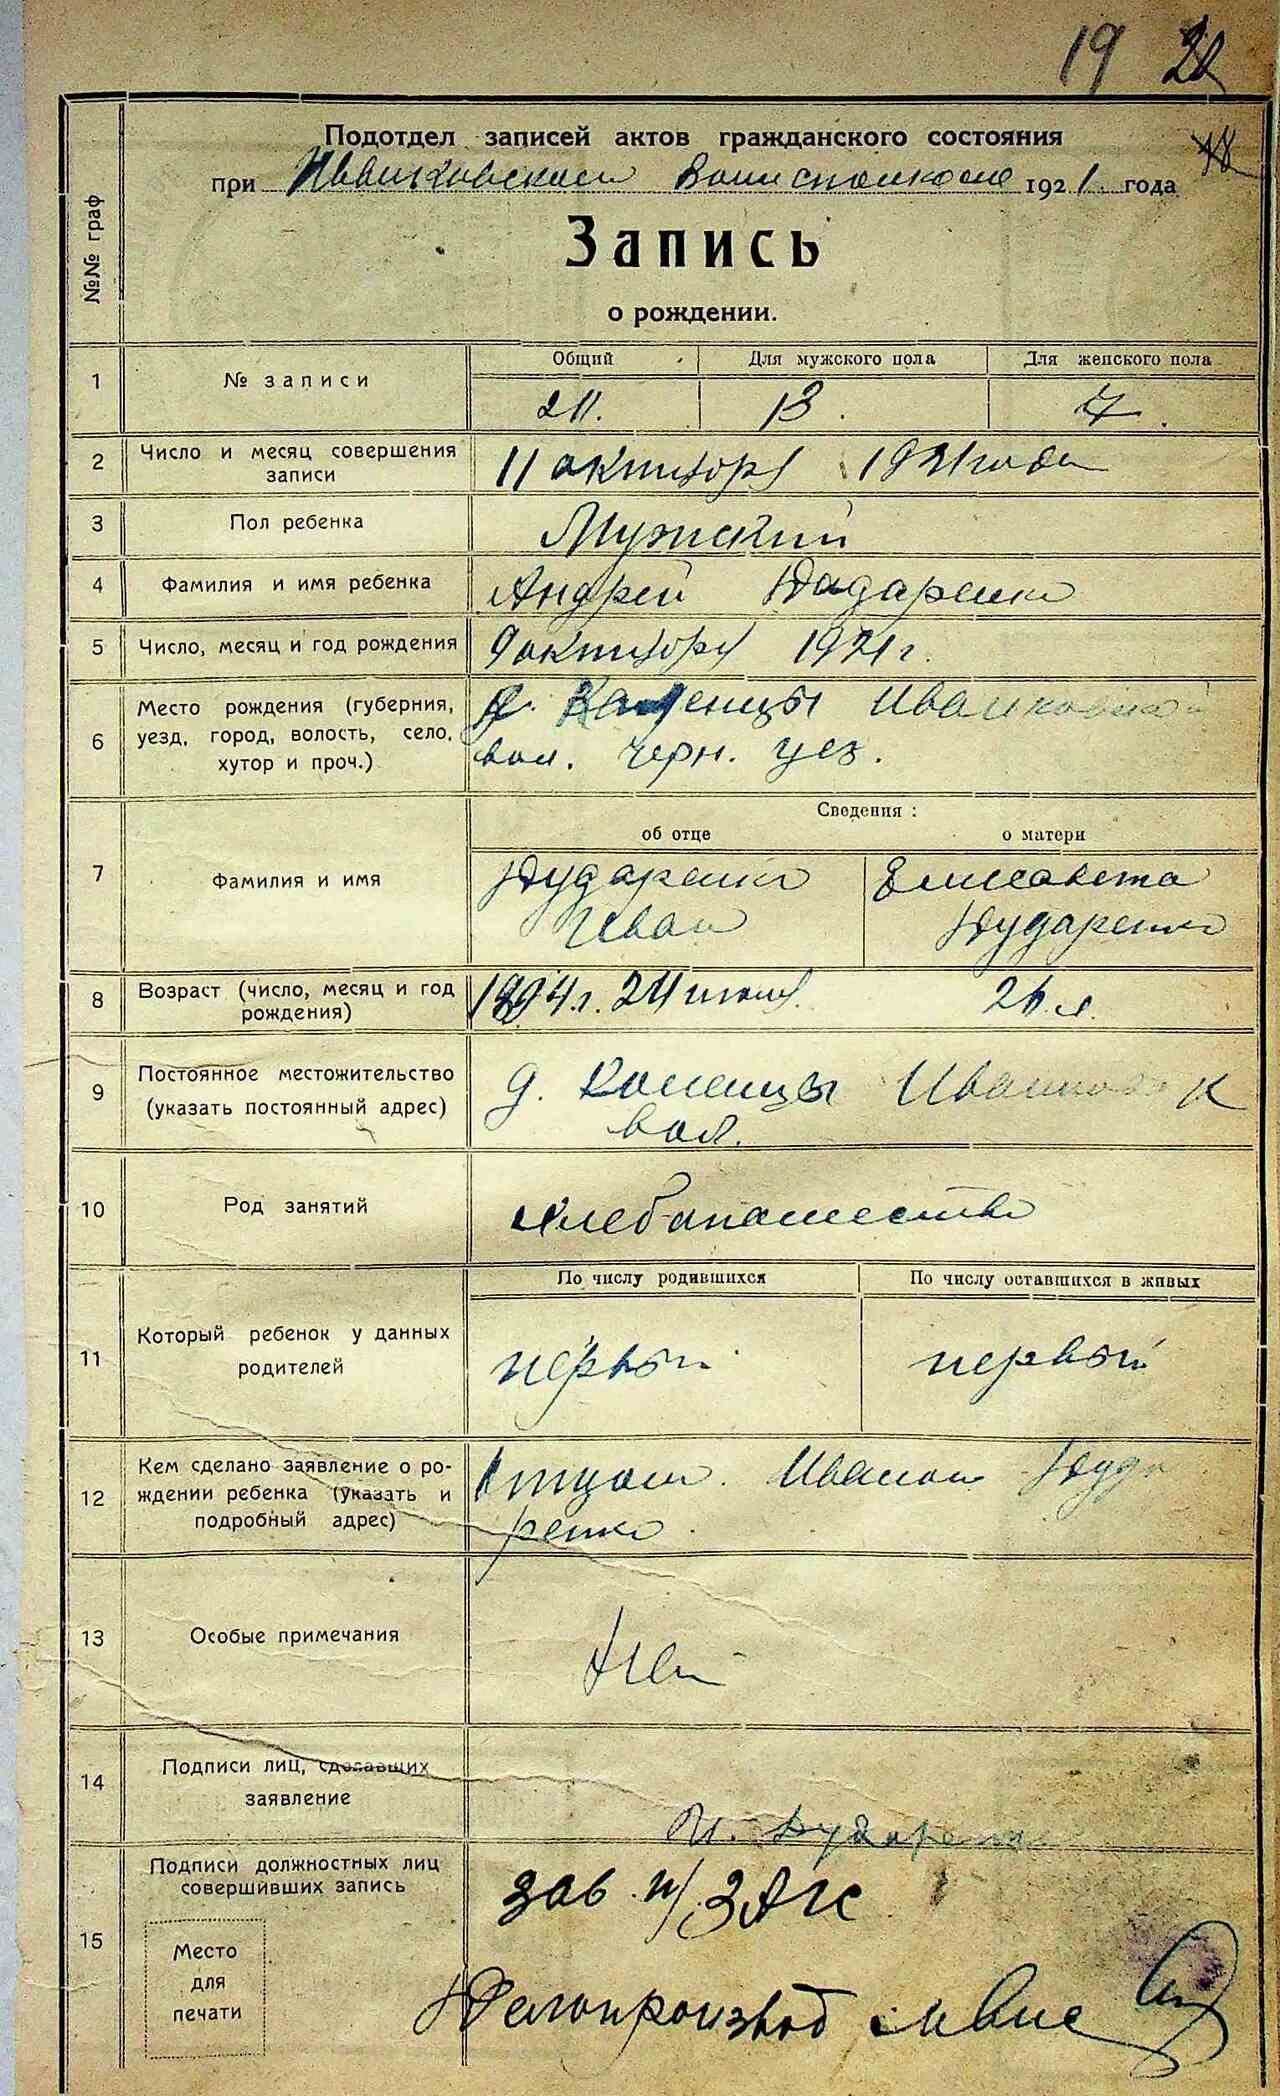 19 20
18
Подотдел записей актов гражданского состояния
при Иванковском Волисполкоме 1921. года
№№ граф
Запись
о рождении.
1 № записи
Общий Для мужского пола Для женского пола
13. 7.
2 Число и месяц совершения
записи
11 октября 1921 года
3 Пол ребенка Мужский
4 Фамилия и имя ребенка Андрей Дадаренко
5 Число, месяц и год рождения 9 октября 1921 г.
6 Место рождения (губерния,
уезд, город, волость, село,
хутор и проч.)
д. Иванковской
вол. Черн. уез.
Сведения :
об отце о матери
7 Фамилия и имя
Дударенко Елисавета
Иван Дударенко
8 Возраст (число, месяц и год
рождения)
24 26 л.
9 Постоянное местожительство
(указать постоянный адрес)
д. Каменцы
вол.
10 Род занятий хлебопашество
По числу родившихся По числу оставшихся в живых
11 Который ребенок у данных
родителей
первый первый
12 Кем сделано заявление о ро-
ждении ребенка (указать и
подробный адрес)
Отцом. Иваном Дуда
ренко.
13 Особые примечания Нет
14 Подписи лиц, сделавших
заявление
И. Дударенко
Подписи должностных лиц
совершивших запись
15
Место
для
печати
Зав. п/ЗАГС
Делопроизвод